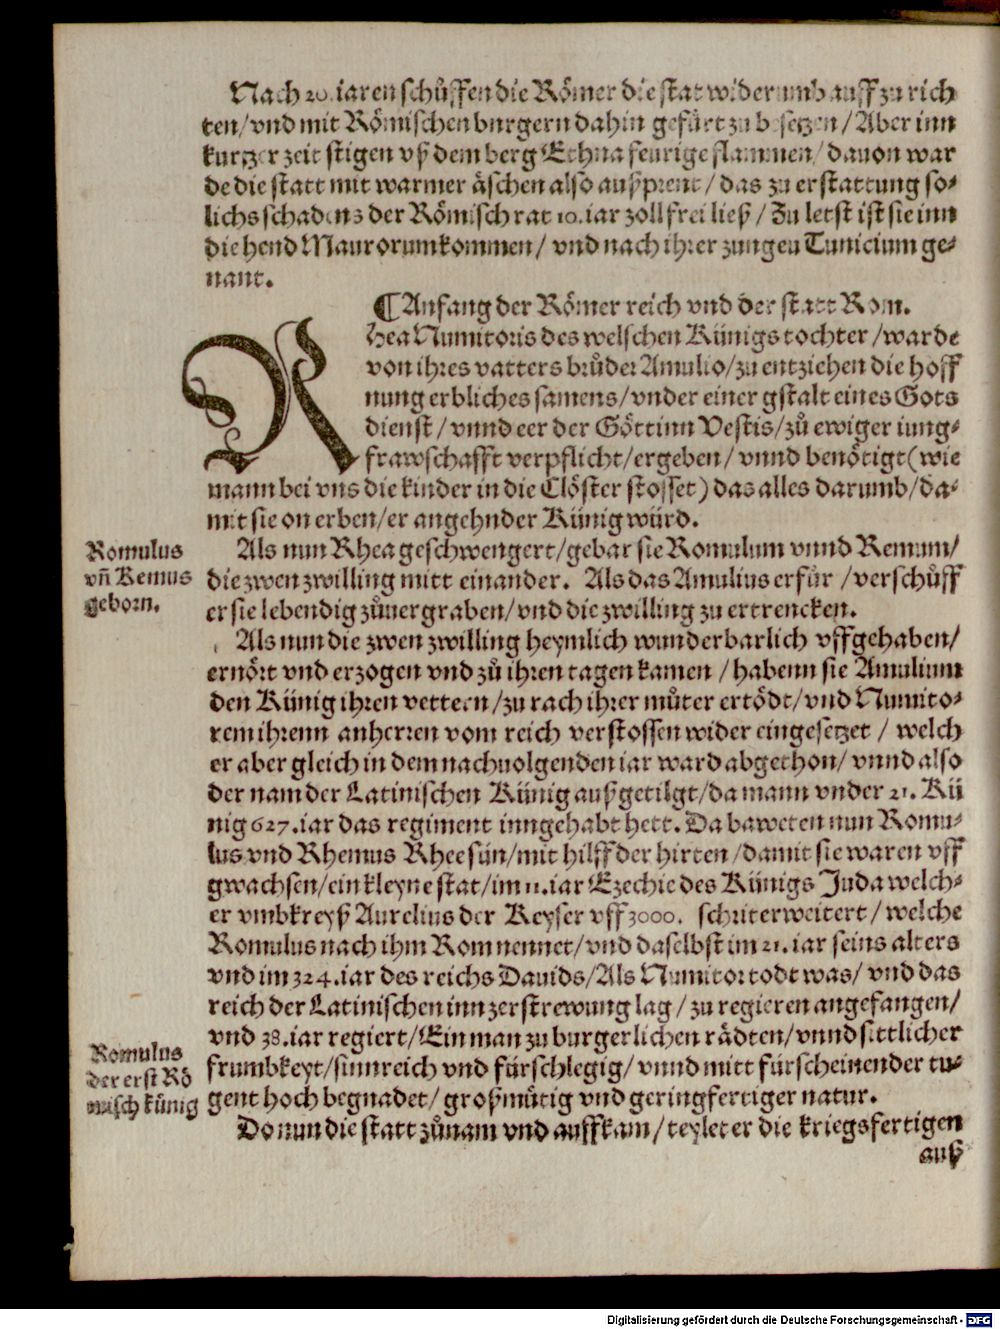 Nach 20. iaren schůffen die Römer die stat widerumb auff zu rich
ten/ vnd mit Römischen burgern dahin gefürt zu besetzen/ Aber inn
kurtzer zeit stigen vß dem berg Ethna feurige flammen/ dauon war
de die statt mit warmer äschen also außprent/ das zu erstattung so⸗
lichs schadens der Römisch rat 10. iar zoll frei ließ/ Zu letst ist sie inn
die hend Maurorum kommen/ vnd nach ihrer zungen Tunicium ge⸗
nant.
¶ Anfang der Römer reich vnd der statt Rom.
Rhea Numitoris des welschen Künigs tochter/ warde
von ihres vatters brůder Amulio/ zu entziehen die hoff
nung erbliches samens/ vnder einer gstalt eines Gots
dienst/ vnnd eer der Göttinn Vestis/ zů ewiger iung⸗
frawschafft verpflicht/ ergeben/ vnnd benötigt (wie
mann bei vns die kinder in die Clöster stosset) das alles darumb/ da⸗
mit sie on erben/ er angehnder Künig würd.
Romulus
vñ Remus
geborn.
Als nun Rhea geschwengert/ gebar sie Romulum vnnd Remum/
die zwen zwilling mitt einander. Als das Amulius erfůr/ verschůff
er sie lebendig zůuergraben/ vnd die zwilling zu ertrencken.
Als nun die zwen zwilling heymlich wunderbarlich vffgehaben/
ernört vnd erzogen vnd zů ihren tagen kamen/ habenn sie Amulium
den Künig ihren vettern/ zu rach ihrer můter ertödt/ vnd Numito⸗
rem ihrenn anherren vom reich verstossen wider eingesetzet/ welch
er aber gleich in dem nachuolgenden iar ward abgethon/ vnnd also
der nam der Latinischen Künig außgetilgt/ da mann vnder 21. Kü
nig 627. iar das regiment inngehabt hett. Da baweten nun Romu⸗
lus vnd Rhemus Rhee sün/ mit hilff der hirten/ damit sie waren vff
gwachsen/ ein kleyne stat/ im 11. iar Ezechie des Künigs Juda welch⸗
er vmbkreyß Aurelius der Keyser vff 3000. schrit erweitert/ welche
Romulus nach ihm Rom nennet/ vnd daselbst im 21. iar seins alters
vnd im 324. iar des reichs Dauids/ Als Numitor todt was/ vnd das
reich der Latinischen inn zerstrewung lag/ zu regieren angefangen/
vnd 38. iar regiert/ Ein man zu burgerlichen rädten/ vnnd sittlicher
Romulus
der erst Rö
misch künig
frumbkeyt/ sinnreich vnd fürschlegig/ vnnd mitt fürscheinender tu⸗
gent hoch begnadet/ großmütig vnd geringfertiger natur.
Do nun die statt zůnam vnd auffkam/ teylet er die kriegsfertigen
auß
Digitalisierung gefördert durch die Deutsche Forschungsgemeinschaft - DFG